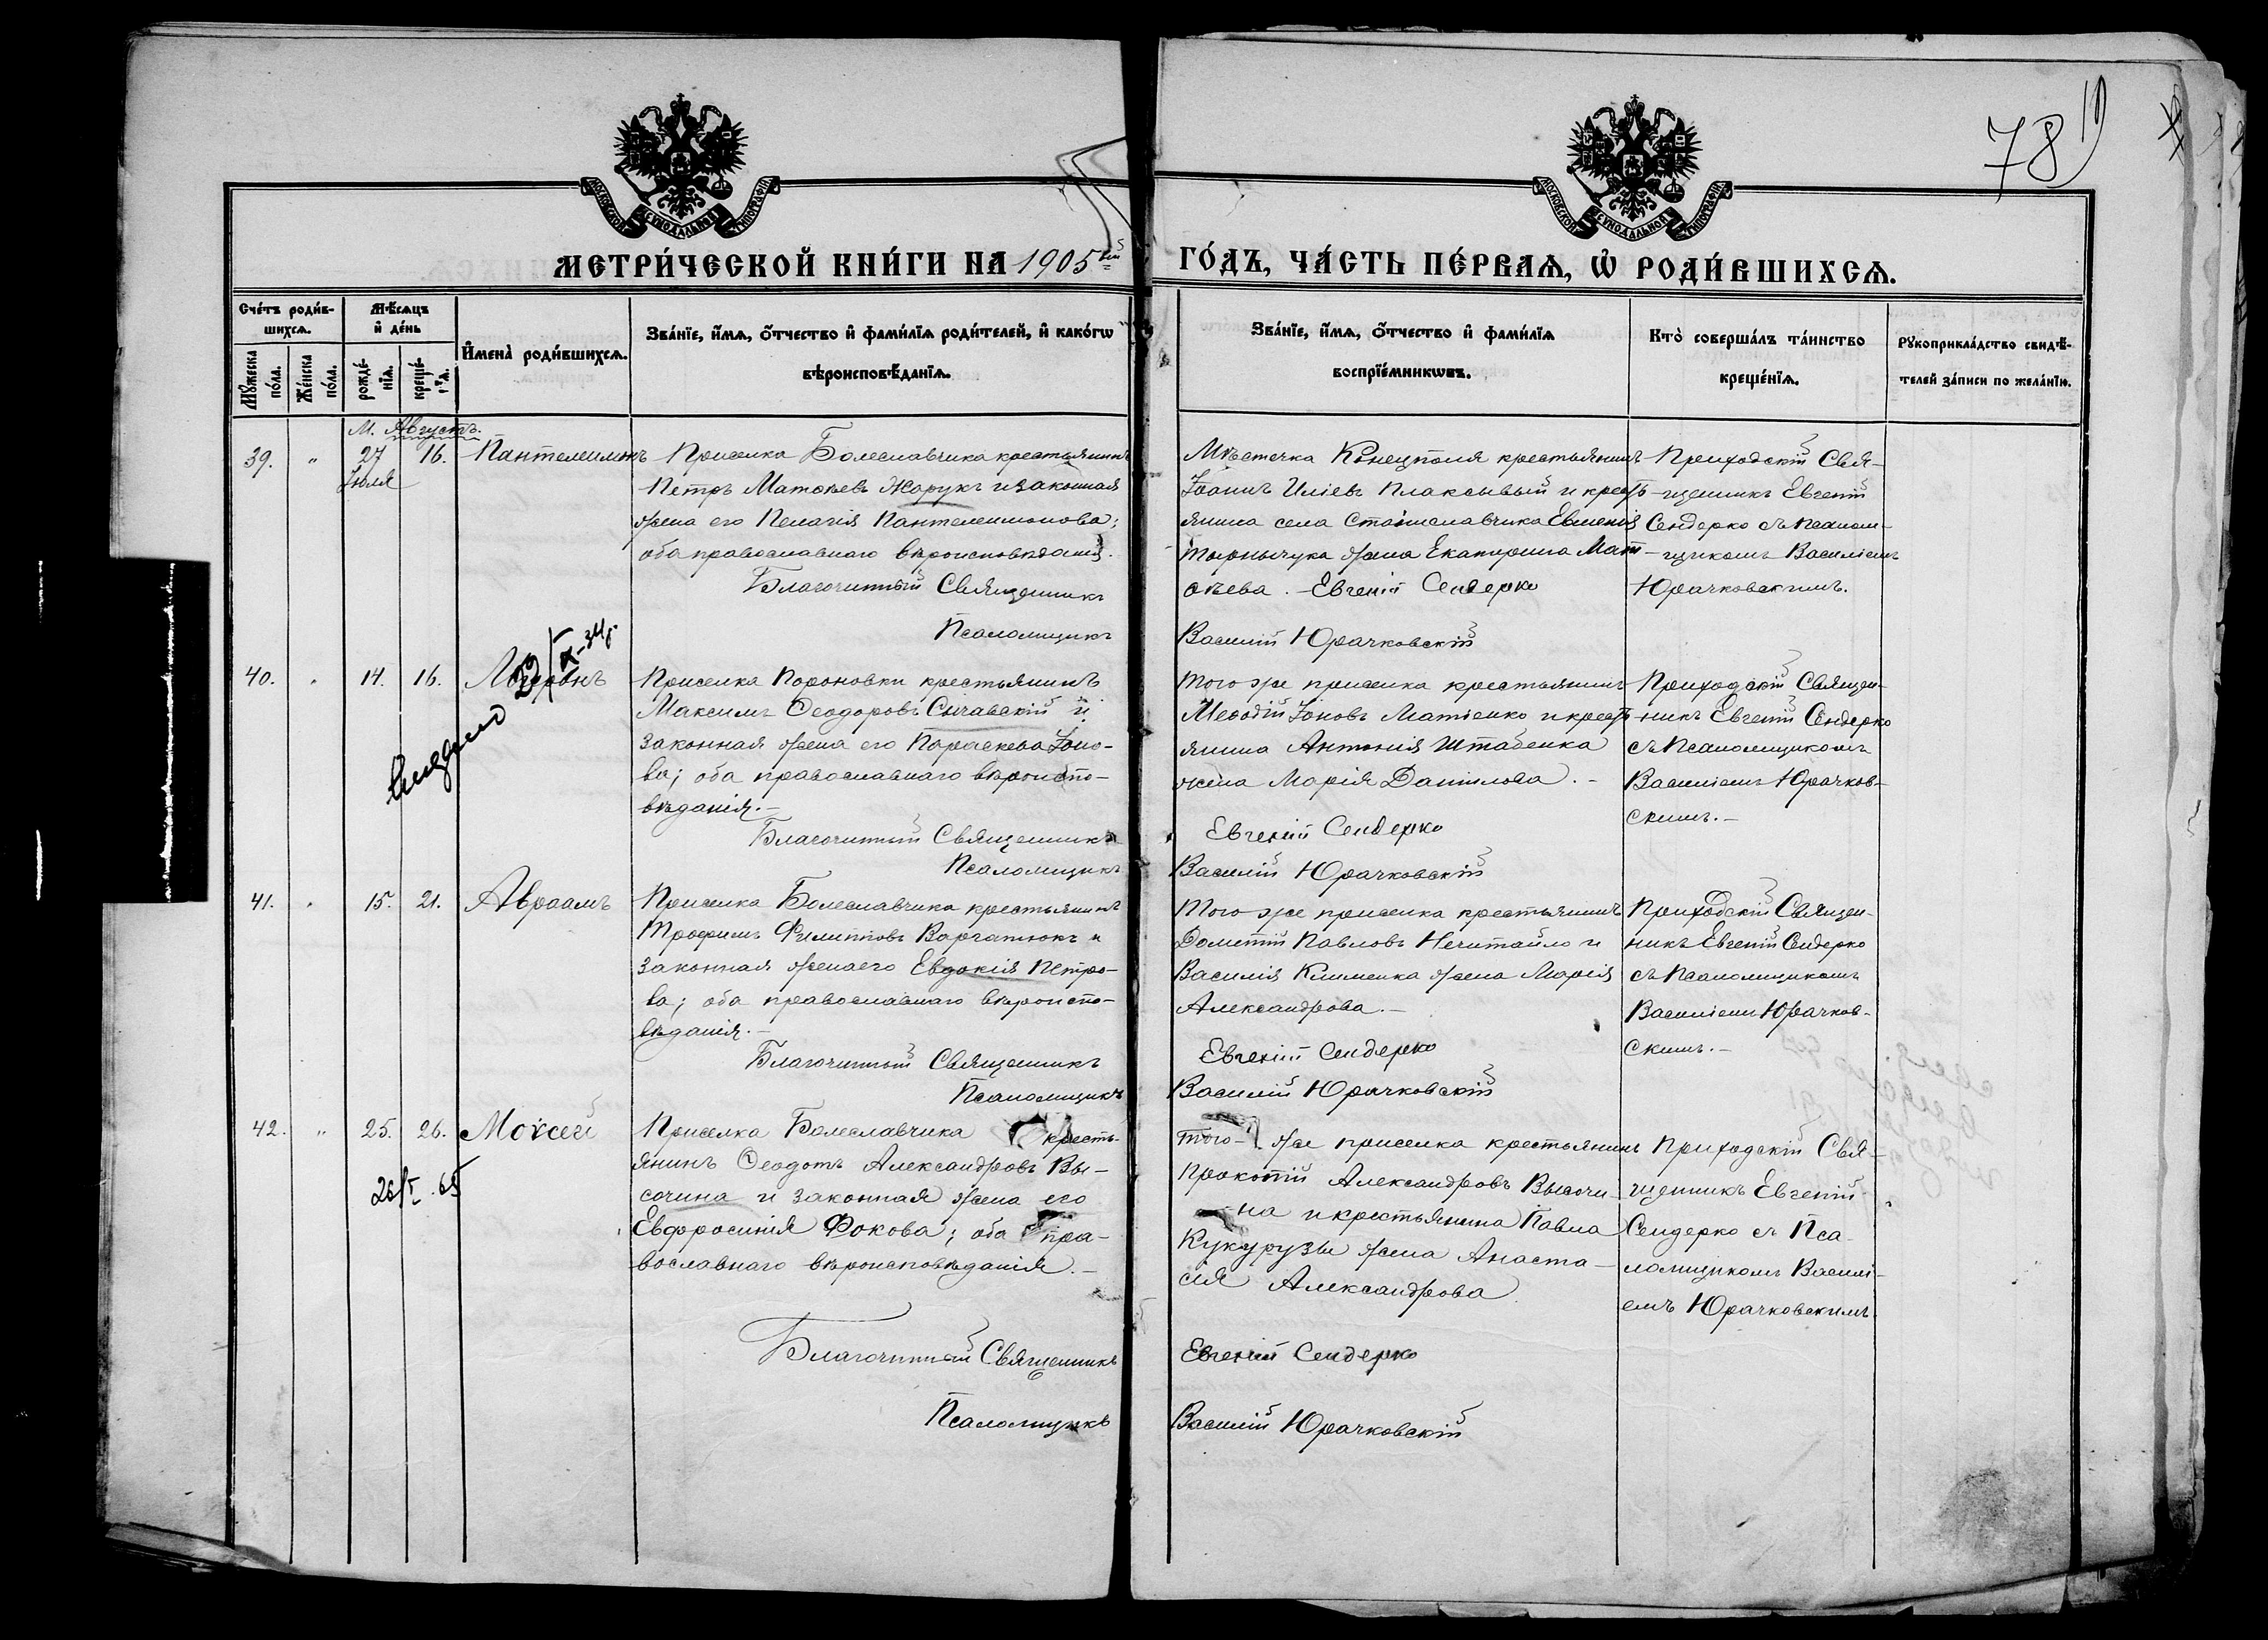 78
МОСКОВСКОЙ СУНОДАЛЬНОЙ ТИПОГРАФІИ
МОСКОВСКОЙ СУНОДАЛЬНОЙ ТИПОГРАФІИ
МЕТРИ́ЧЕСКОЙ КНИ́ГИ НА 1905 ГО́ДЪ, ЧА́СТЬ ПЕ́РВАѦ, Ѡ҆ РОДИ́ВШИХСѦ.
Сче́тъ роди́в-
шихсѧ.
Мꙋ́жеска
по́ла.
Же́нска
по́ла.
Мѣ́сѧцъ
и҆ де́нь
рожде́-
нїѧ.
креще́-
нїѧ.
И҆мена̀ роди́вшихсѧ.
Зва́нїе, и҆́мѧ, ѻ҆́тчество и҆ фами́лїѧ роди́телей, и҆ како́гѡ
вѣроисповѣ́данїѧ.
Зва́нїе, и҆́мѧ, ѻ҆́тчество и҆ фами́лїѧ
воспрїе́мникѡвъ.
Кто̀ соверша́лъ та́инство
креще́нїѧ.
Рꙋкоприкла́дство свидѣ́-
телей за́писи по жела́нїю.
М. Августъ.
39. " 27 Іюля 16. Пантелеимонъ
Приселка Болеславчика крестьянинъ
Петръ Матѳѣевъ Жарукъ и законная
жена его Пелагія Пантелеимонова;
оба православнаго вѣроисповѣданія.
Благочинный Священникъ
Псаломщикъ
Мѣстечка Конецполя крестьянинъ
Іоаннъ Иліевъ Плаксывый и кресть-
янина села Станиславчика Евменія
Тырнычука жена Екатерина Мат-
ѳѣева. Евгеній Сендерко
Василій Юрачковскій
Приходскій Свя-
щенникъ Евгеній
Сендерко съ псалом-
щикомъ Василіемъ
Юрачковскимъ.
40. " 14. 16.
Выдано 29/X-34г.
Приселка Пороновки крестьянинъ
Максимъ Ѳеодоровъ Сычавскій и
законная жена его Параскева Іоно-
ва; оба православнаго вѣроиспо-
вѣданія.-
Благочинный Священникъ
Псаломщикъ
того же приселка крестьянинъ
Меѳодій Іоновъ Матіенко и кресть-
янина Антонія Штабенка
жена Марія Даніилова.-
Евгеній Сендерко
Василій Юрачковскій
Приходскій Священ-
никъ Евгеній Сендерко
съ Псаломщикомъ
Василіемъ Юрачков-
скимъ.-
41. " 15. 21. Авраамъ
Приселка Болеславчика крестьянинъ
Трофимъ Филипповъ Варгатюкъ и
законная жена его Евдокія Петро-
ва; оба православнаго вѣроиспо-
вѣданія.-
Благочинный Священникъ
Псаломщикъ
Того же приселка крестьянинъ
Дометій Павловъ Нечитайло и
Василія Клименка жена Марія
Александрова.-
Евгеній Сендерко
Василій Юрачковскій
Приходскій Священ-
никъ Евгеній Сендерко
съ Псаломщикомъ
Василіемъ Юрачков-
скимъ.-
42. " 25. 26. Моѵсей
26/I.65
Приселка Болеславчика кресть-
янинъ Ѳеодотъ Александровъ Вы-
сочина и законная жена его
Евфросинія Фокова; оба пра-
вославнаго вѣроисповѣданія.-
Благочинный Священникъ
Псаломщикъ
того-же приселка крестьянинъ
Прокопій Александровъ Высочи-
на и крестьянина Павла
Кукурузы жена Анаста-
сія Александрова
Евгеній Сендерко
Василій Юрачковскій
Приходскій Свя-
щенникъ Евгеній
Сендерко съ Пса-
ломщикомъ Василі-
емъ Юрачковскимъ.